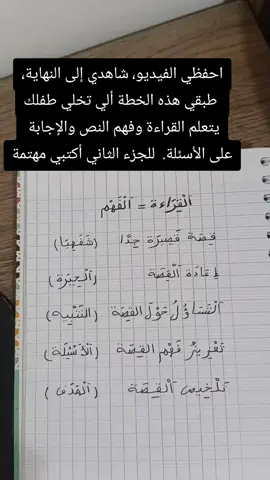 احفظي الفيديو، شاهدي إلى النهاية،
طبقي هذه الخطة ألي تخلي طفلك
يتعلم القراءة وفهم النص والإجابة
على الأسئلة. للجزء الثاني أكتبي مهتمة
اَلْقِرَاءة = اَلْفَهْم
قِصَة قَصِيرَة جِدًّا (شَفَهِيًا)
إِعَادَة اَلْقِصَّة
اَلتَسَاؤُلُ حَوْلَ القِصَة (التَنْبِيه)
تَعْزِيزُ فَهْم القِصَّة (اَلْأَسْئِلَة)
تَلْخِيص اَلْقِصَّة (اَلْهَدَف)